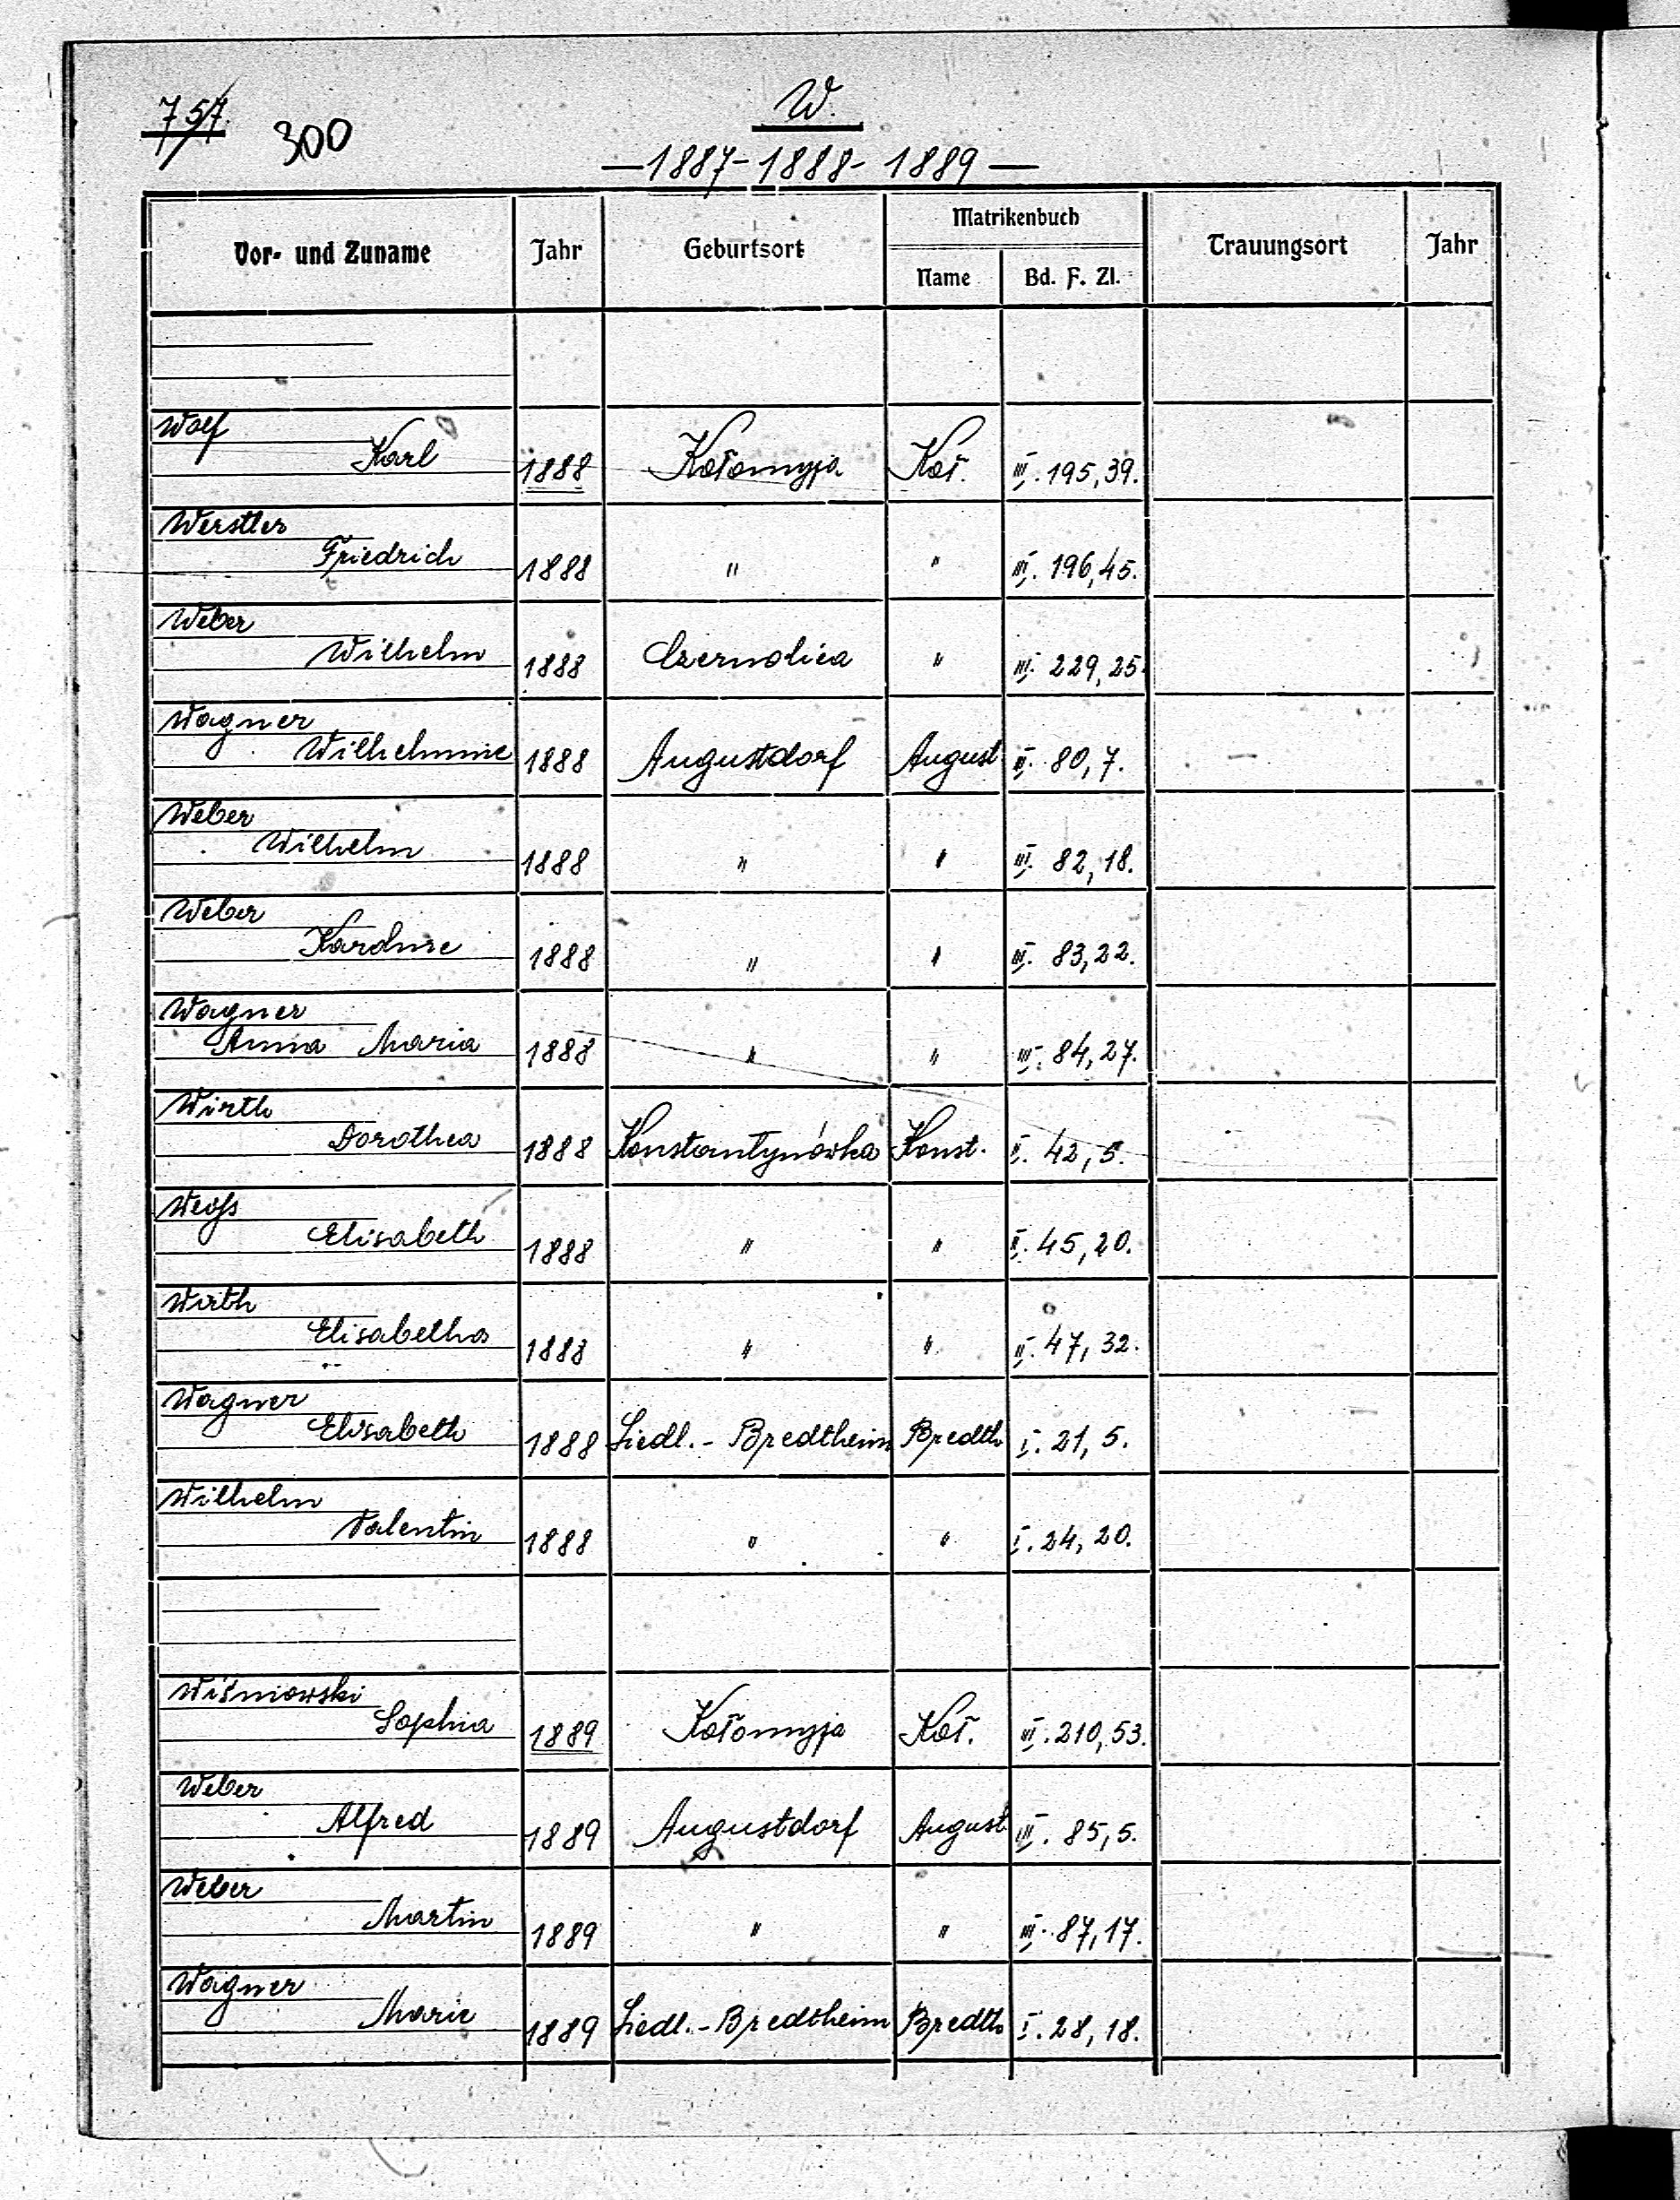 757.
300
W.
—1887-1888-1889—
Vor- und Zuname Jahr Geburtsort Matrikenbuch Trauungsort Jahr
Name Bd. F. Zl.
Wolf
Karl 1888 Kołomyja Koł. III. 195, 39.
Werstler
Friedrich 1888 " " III. 196, 45.
Weber
Wilhelm 1888 Czernolica " III. 229, 25.
Wagner
Wilhelmine 1888 Augustdorf August III. 80, 7.
Weber
Wilhelm 1888 " " III. 82, 18.
Weber
Karoline 1888 " " III. 83, 22.
Wagner
Anna Maria 1888 " " III. 84, 27.
Wirth
Dorothea 1888 Konstantynówka Konst. II. 42, 5.
Weiss
Elisabeth 1888 " " II. 45, 20.
Wirth
Elisabetha 1888 " " II. 47, 32.
Wagner
Elisabeth 1888 Siedl.-Bredtheim Bredth I. 21, 5.
Wilhelm
Valentin 1888 " " I. 24, 20.
Wiśniowski
Sophia 1889 Kołomyja Koł. III. 210, 53.
Weber
Alfred 1889 Augustdorf August III. 85, 5.
Weber
Martin 1889 " " III. 87, 17.
Wagner
Marie 1889 Siedl.-Bredtheim Bredth I. 28, 18.